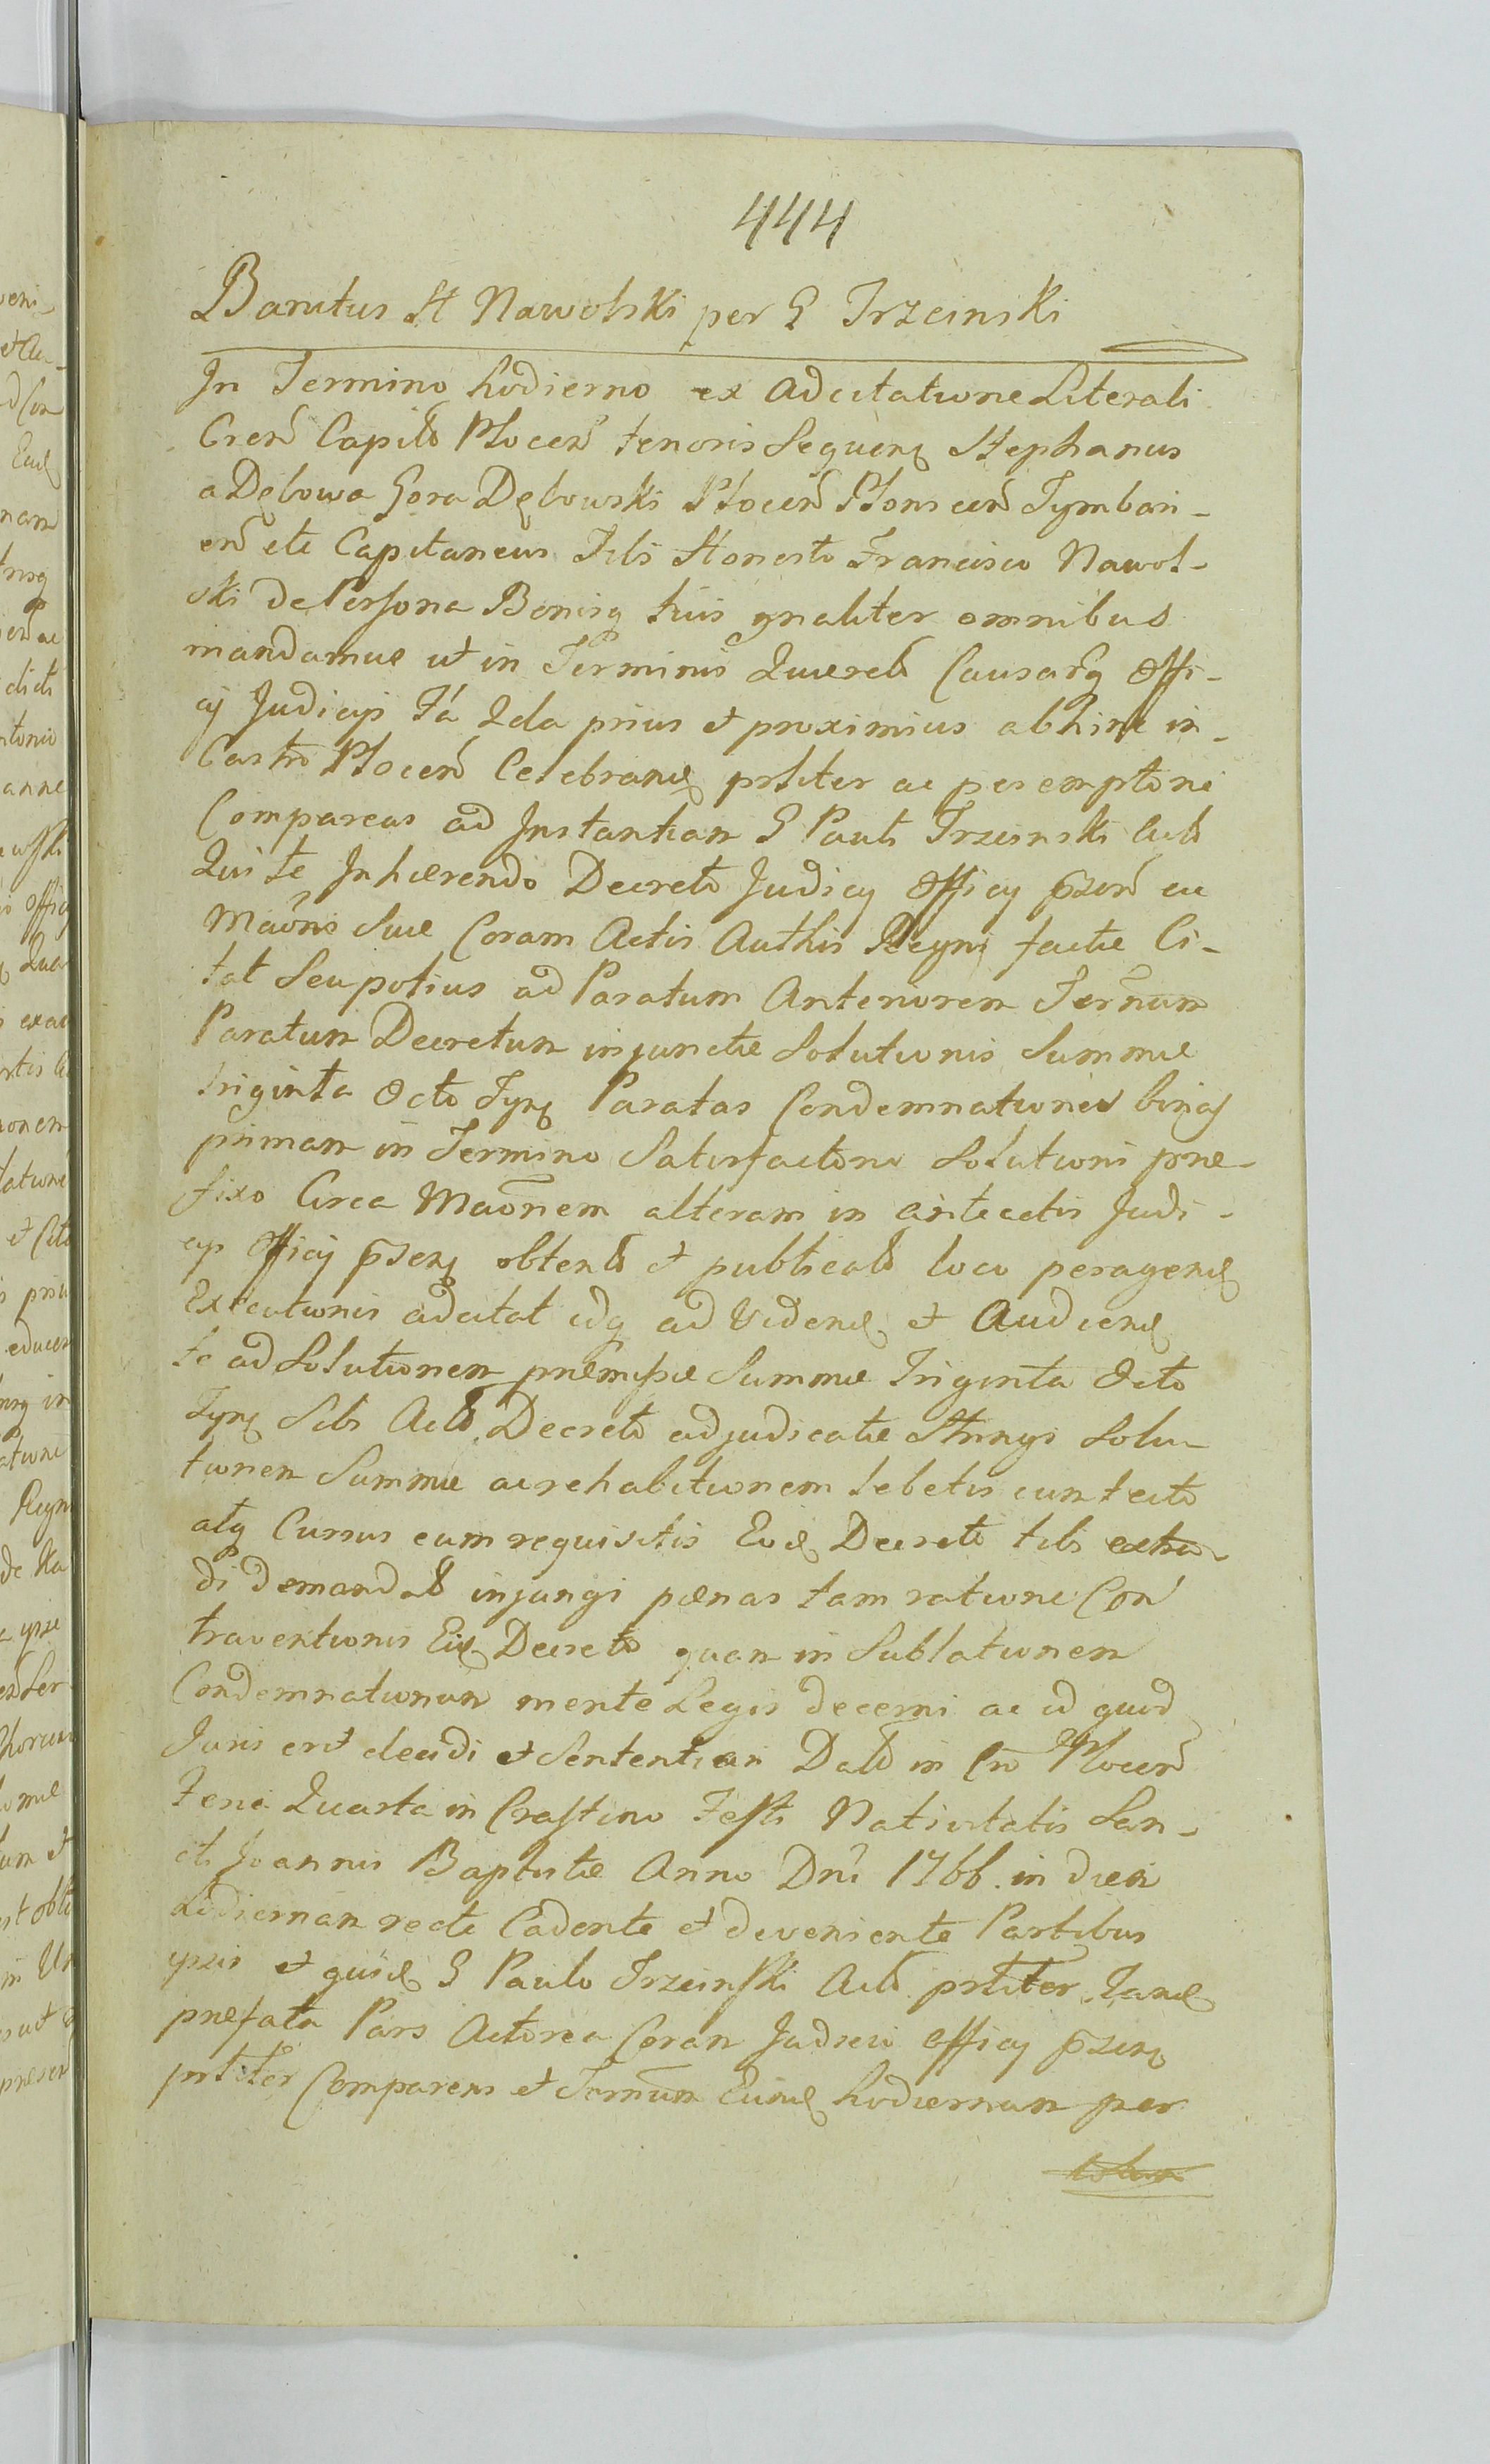 444
Banitus H Nawolski per G Trzcinski
In Termino hodierno ex Adcitatione Literali
Cren Capitb Plocen tenoris Sequenę Stephanus
a Dębowa Gora Dębowski Plocen Plonscen Tymbari-
en etc Capitaneus Tibi Honesto Francisco Nawol-
ski de Persona Bonisq tuis gnaliter omnibus
mandamus ut in Terminis Querelb Causarq Offi-
cij Judicij Fa 2da prius et proximius abhinc in-
Castro Plocen Celebranę prliter ac peremptorie
Compareas ad Instantiam G Pauli Trzcinski Actb
Qui te Inhærendo Decreto Judicij Officij pszen ac
Maonis suæ Coram Actis Authis Regni factæ Ci-
tat Seu potius ad Paratum Anteriorem Termum
Paratum Decretum injunctæ Solutionis Summæ
triginta Octo Tynę Paratas Condemnationes binas
primam in Termino Satisfactono Solutioni præ-
fixo Circa Maonem alteram in anteactis Judi-
cijs Officij pszenę obtentb et publicatb loco peragenę
Executionis adcitat idq ad Videnę et Audienę
te ad Solutionem præmissæ Summæ Triginta Octo
Tynę Sibi Actb Decreto adjudicatæ Stringi Solu-
tionem Summæ ac rehabitionem lebetis cum tecto
atq Cursus cum requisitis Eodę Decreto tibi extra-
di demandatb injungi pænas tam ratione Con
traventionis Eidę Decreto quam in Sublationem
Condemnationum mente Legis decerni ac id quod
Juris erit decidi et Sententiari Datb in Cro Plocen
Feria Quarta in Crastino Festi Nativitatis San-
cti Joannis Baptistæ Anno Dni 1766. in diem
hodiernam recte Cadente et deveniente Partibus
ipsis et quidę G Paulo Trzcinski Actb prliter Tandę
præfata Pars Actorea Coram Judicio officij pszenę
prliter Comparens et Termum Eundę hodiernum per